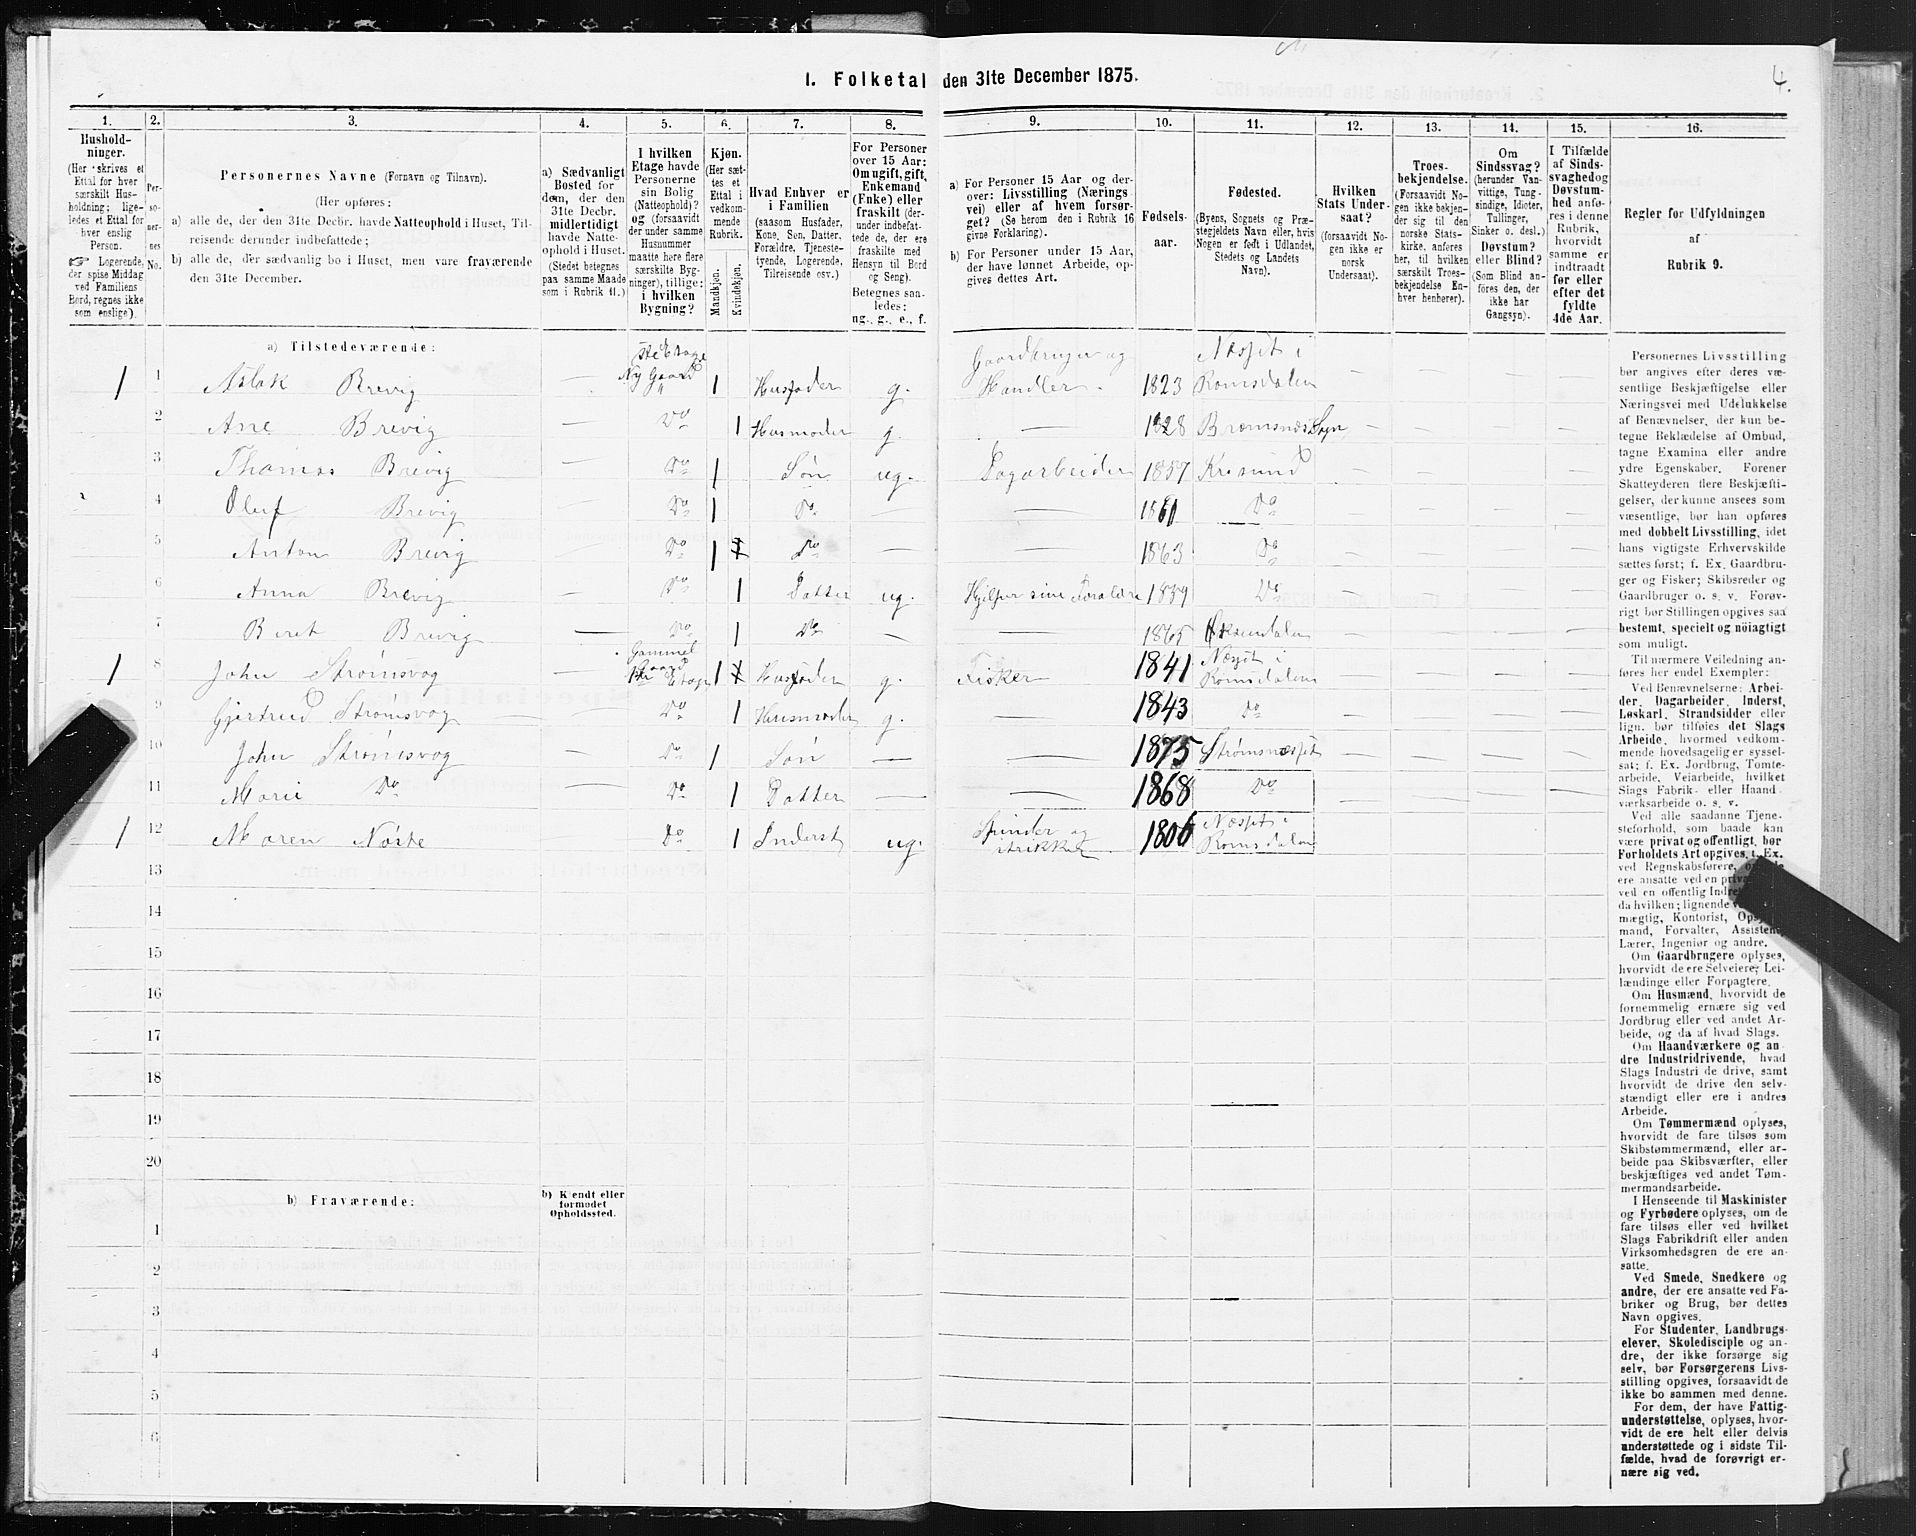 4.
1. Folketal den 31te December 1875.
1. 2. 3. 4. 5. 6. 7. 8. 9. 10. 11. 12. 13. 14. 15. 16.
Hushold-
ninger.
(Her skrives et
Ettal for hver
særskilt Hus-
holdning; lige-
ledes et Ettal for
hver enslig
Person.
☞ Logerende,
der spise Middag
ved Familiens
Bord, regnes ikke
som enslige).
Per-
so-
ner-
nes
No.
Personernes Navne (Fornavn og Tilnavn).
(Her opføres:
a) alle de, der den 31te Decbr. havde Natteophold i Huset, Til-
reisende derunder indbefattede;
b) alle de, der sædvanlig bo i Huset, men vare fraværende
den 31te December.
a) Sædvanligt
Bosted for
dem, der den
31te Decbr.
midlertidigt
havde Natte-
ophold i Huset.
(Stedet betegnes
paa samme Maade
som i Rubrik 11.)
I hvilken
Etage havde
Personerne
sin Bolig
(Natteophold)?
og (forsaavidt
der under samme
Husnummer
maatte høre flere
særskilte Byg-
ninger), tillige:
i hvilken
Bygning?
Kjøn.
(Her sæt-
tes et
Ettal i
vedkom-
mende
Rubrik.
Mandkjøn.
Kvindekjøn.
Hvad Enhver er
i Familien
(saasom Husfader,
Kone, Søn, Datter,
Forældre, Tjeneste-
tyende, Logerende,
Tilreisende osv.)
For Personer
over 15 Aar:
Om ugift, gift,
Enkemand
(Enke) eller
fraskilt (der-
under indbefat-
tede de, der ere
fraskilte med
Hensyn til Bord
og Seng).
Betegnes saa-
ledes:
ug., g., e., f.
a) For Personer 15 Aar og der-
over: Livsstilling (Nærings
vei) eller af hvem forsør-
get? (Se herom den i Rubrik 16
givne Forklaring).
b) For Personer under 15 Aar,
der have lønnet Arbeide, op-
gives dettes Art.
Fødsels-
aar.
Fødested.
(Byens, Sognets og Præ-
stegjeldets Navn eller, hvis
Nogen er født i Udlandet,
Stedets og Landets
Navn).
Hvilken
Stats Under-
saat?
(forsaavidt No-
gen ikke er
norsk
Undersaat).
Troes-
bekjendelse.
(Forsaavidt No-
gen ikke bekjen-
der sig til den
norske Stats-
kirke, anføres
her, til hvilken
særskilt Troes-
bekjendelse En-
hver henhører).
Om
Sindssvag?
(herunder Van-
vittige, Tung-
sindige, Idioter,
Tullinger,
Sinker o. desl.)
Døvstum?
eller Blind?
(Som Blind an-
føres den, der
ikke har
Gangsyn).
I Tilfælde
af Sinds-
svaghed og
Døvstum-
hed anfø-
res i denne
Rubrik,
hvorvidt
samme er
indtraadt
før eller
efter det
fyldte
4de Aar.
Regler for Udfyldningen
af
Rubrik 9.
a) Tilstedeværende:
1 1 Aslak Brevig — Ste Etage Ny Gaard 1 Husfader g. Gaardbruger og Handler. 1823 Næsset i Romsdalen
2 Ane Brevig — Do 1 Husmoder g. — 1828 Bremsnæs Sogn — — — —
3 Thomas Brevig — Do 1 Søn ug. Dagarbeider 1857 Krisund — — — —
4 Oluf Brevig — Do 1 Do — — 1861 Do — — — —
5 Anton Brevig — Do 1 Do — — 1863 Do — — — —
6 Anna Brevig — Do 1 Datter ug. Hjelper sine Foraldre 1859 Do — — — —
7 Beret Brevig — Do 1 Do — — 1865 Øksendalen — — — —
1 8 John Strømsvog Gammel Gaard 1ste Etage 1 Husfader g. Fisker 1841 Næsset i Romsdalen — — — —
9 Gjertrud Strømsvog — Do 1 Husmoder g. — 1843 Do — — — —
10 John Strømsvog — Do 1 Søn — 1875 Strømsnæsset — — — —
11 Marie Do — Do 1 Datter — — 1868 Do — — — —
1 12 Maren Nørte Do 1 Inderst ug. Spinder og strikker 1806 Næsset i Romsdalen
13
14
15
16
17
18
19
20
b) Fraværende:
b) Kjendt eller
formodet
Opholdssted.
1
2
3
4
5
6
Personernes Livsstilling
bør angives efter deres væ-
sentlige Beskjæftigelse eller
Næringsvei med Udelukkelse
af Benævnelser, der kun be-
tegne Beklædelse af Ombud,
tagne Examina eller andre
ydre Egenskaber. Forener
Skatteyderen flere Beskjæfti-
gelser, der kunne ansees som
væsentlige, bør han opføres
med dobbelt Livsstilling, idet
hans vigtigste Erhvervskilde
sættes først; f. Ex. Gaardbru-
ger og Fisker; Skibsreder og
Gaardbruger o. s. v. Forøv-
rigt bør Stillingen opgives saa
bestemt, specielt og nöiagtigt
som muligt.
Til nærmere Veiledning an-
føres her endel Exempler:
Ved Benævnelserne: Arbei-
der, Dagarbeider, Inderst,
Løskarl, Strandsidder eller
lign. bør tilføies det Slags
Arbeide, hvormed vedkom-
mende hovedsagelig er syssel-
sat; f. Ex. Jordbrug, Tomte-
arbeide, Veiarbeide, hvilket
Slags Fabrik- eller Haand
værksarbeide o. s. v.
Ved alle saadanne Tjene-
steforhold, som baade kan
være privat og offentligt, bør
Forholdets Art opgives, t. Ex.
ved Regnskabsførere,
ere ansatte ved en
ved en offentlig
da hvilken; lignende
mægtig, Kontorist,
mand, Forvalter,
Lærer, Ingeniør og andre.
Om Gaardbrugere oplyses,
hvorvidt de ere Selveiere, Lei-
lændinge eller Forpagtere.
Om Husmænd, hvorvidt de
fornemmelig ernære sig ved
Jordbrug eller ved andet Ar-
beide, og da af hvad Slags.
Om Haandværkere og an
dre Industridrivende, hvad
Slags Industri de drive, samt
hvorvidt de drive den selv-
stændigt eller ere i andres
Arbeide.
Om Tømmermænd oplyses,
hvorvidt de fare tilsøs som
Skibstømmermænd, eller ar-
beide paa Skibsværfter, eller
beskjæftiges ved andet Tøm-
mermandsarbeide.
I Henseende til Maskinister
og Fyrbødere oplyses, om de
fare tilsøs eller ved hvilket
Slags Fabrikdrift eller anden
Virksomhedsgren de ere an-
satte.
Ved Smede, Snedkere og
andre, der ere ansatte ved Fa-
briker og Brug, bør dettes
Navn opgives.
For Studenter, Landbrugs-
elever, Skoledisciple og an-
dre, der ikke forsørge sig
selv, bør Forsørgerens Livs-
stilling opgives, forsaavidt de
ikke bo sammen med denne.
For dem, der have Fattig-
understøttelse, oplyses, hvor-
vidt de ere helt eller delvis
understøttede og i sidste Til-
fælde, hvad de forøvrigt er-
nære sig ved.